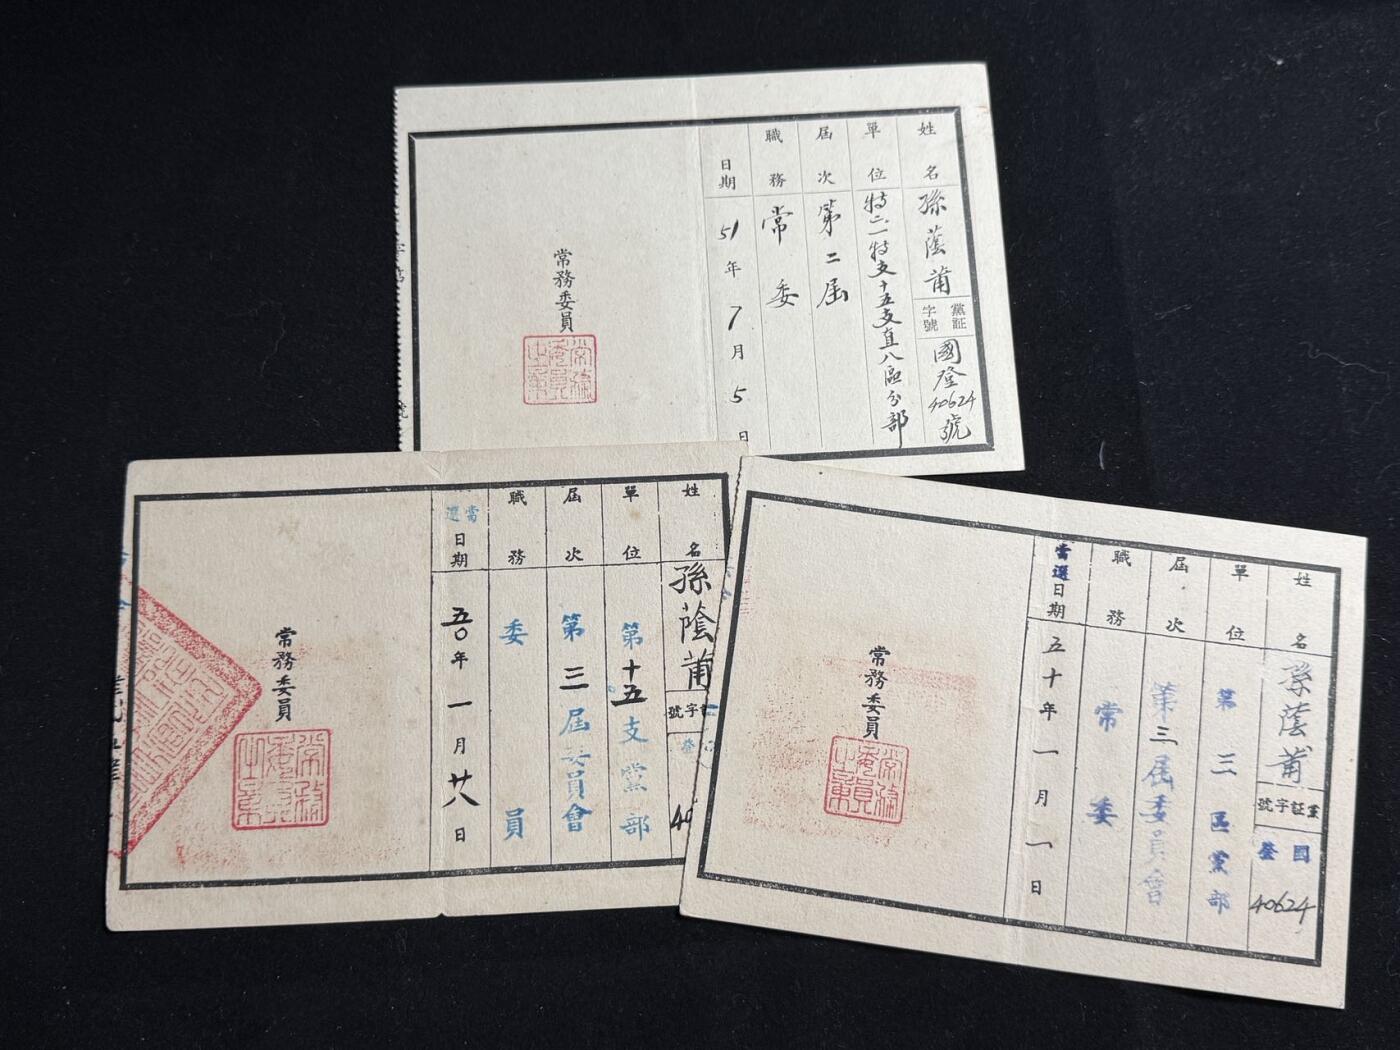 姓名 孫蔭甫
黨証字號 國登40624號
單位 特二一特支十五支直八區分部
屆次 第二屆
職務 常委
日期 51年7月5日
常務委員
姓名 孫蔭甫
字號 登 40
單位 第十五支黨部
屆次 第三屆委員會
職務 委員
當選日期 五〇年一月廿八日
常務委員
姓名 孫蔭甫
黨証字號 國登 40624
單位 第三區黨部
屆次 第三屆委員會
職務 常委
當選日期 五十年一月一日
常務委員